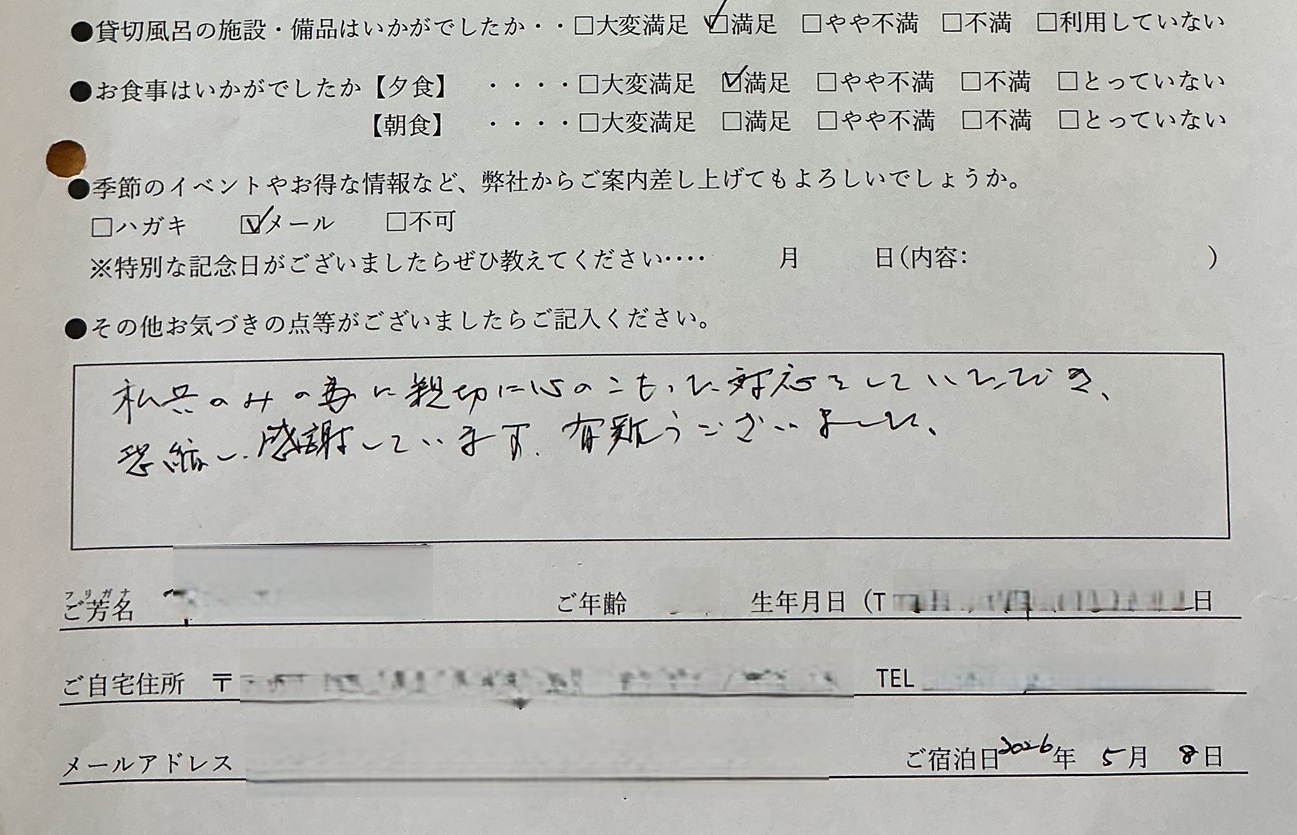 ●貸切風呂の施設・備品はいかがでしたか・・□大変満足 ☑満足 □やや不満 □不満 □利用していない
●お食事はいかがでしたか【夕食】 ・・・・□大変満足 ☑満足 □やや不満 □不満 □とっていない
【朝食】 ・・・・□大変満足 □満足 □やや不満 □不満 □とっていない
●季節のイベントやお得な情報など、弊社からご案内差し上げてもよろしいでしょうか。
□ハガキ ☑メール □不可
※特別な記念日がございましたらぜひ教えてください‥‥ 月 日(内容: )
●その他お気づきの点等がございましたらご記入ください。
私共のみの為に親切に心のこもった対応をしていただき、
恐縮し、感謝しています。有難うございました。
フリガナ
ご芳名 ご年齢 生年月日(T 日
ご自宅住所 〒 TEL
メールアドレス ご宿泊日2026年 5月 8日